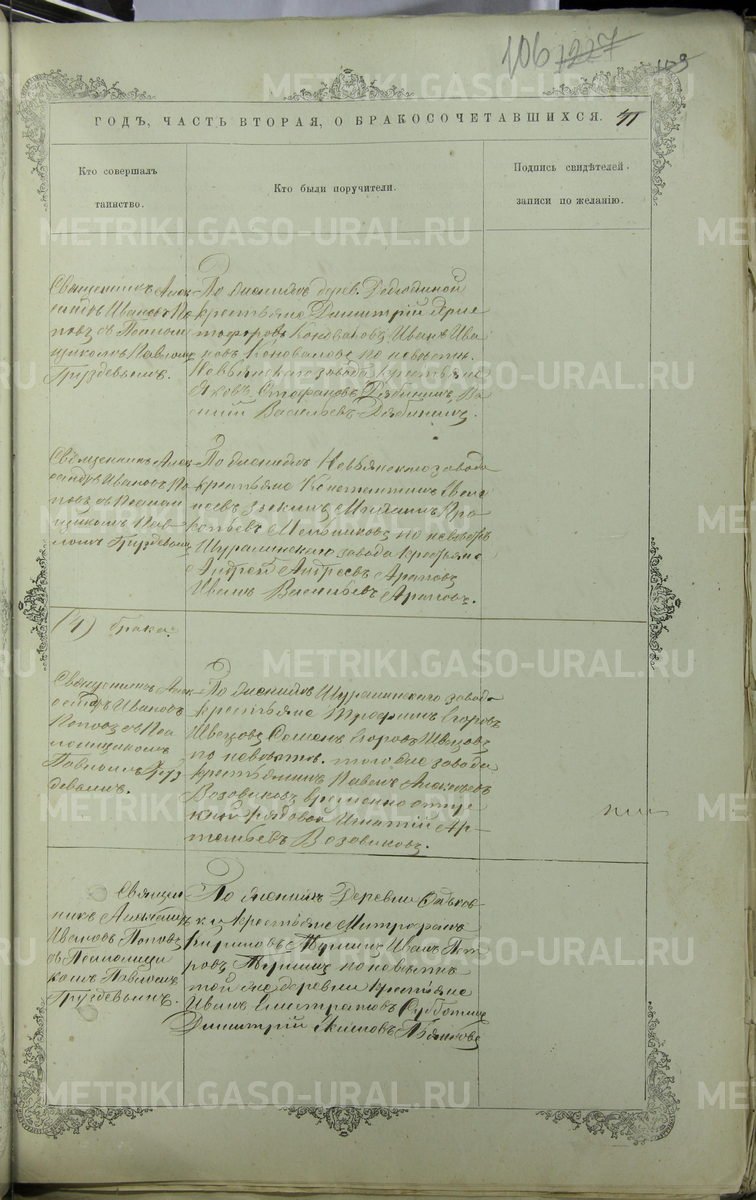 106 1227 109
ГОДЪ, ЧАСТЬ ВТОРАЯ, О БРАКОСОЧЕТАВШИХСЯ.
Кто совершалъ
таинство.
Кто были поручители.
Подпись свидѣтелей
записи по желанію.
Священникъ Алек
Ивановъ По
повъ съ Псалом
щикомъ Павломъ
Груздевымъ.
По женихѣ дерев.
крестьяне Димитрій Хрис
тофоровъ Коноваловъ Иванъ Ива
новъ Коноваловъ по невѣстѣ
Невьянскаго завода крестьяне
Яковъ Стефановъ Дябинъ, Ва
силій Васильевъ Дябинъ.
Священникъ Алек
сандръ Ивановъ По
повъ съ Псалом
щикомъ Пав
ломъ Груздевымъ
По женихѣ Невьянскаго завода
крестьяне Константинъ
Про
копьевъ Мельниковъ по невѣстѣ
Шуралинскаго завода крестьяне
Андрей Андреевъ Араповъ
Иванъ Васильевъ Араповъ.
(4) брака.
Священникъ Алек
сандръ Ивановъ
Поповъ съ Пса
ломщикомъ
Павломъ Груз
девымъ.
По женихѣ Шуралинскаго завода
крестьяне Трофимъ Егоровъ
Швецовъ Семенъ Егоровъ Швецовъ
по невѣстѣ того же завода
крестьянинъ Павелъ Алексѣевъ
Возовиковъ временно отпус
кной рядовой Игнатій Ар
темьевъ Возовиковъ.
Священ
никъ Александръ
Ивановъ Поповъ
съ Псаломщи
комъ Павломъ
Груздевымъ.
По женихѣ Деревни
крестьяне Митрофанъ
Кириловъ Иванъ Пет
ровъ по невѣстѣ
той же деревни крестьяне
Иванъ Елистратовъ Субботинъ
Димитрій Акимовъ
METRIKI.GASO-URAL.RU